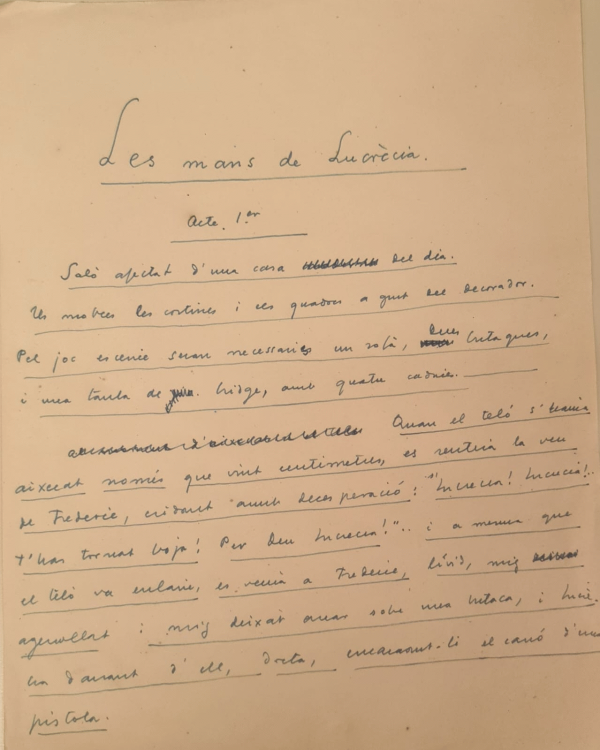 Les mans de Lucrècia.
Acte. 1.er
Saló afectat d'una casa del dia.
Els mobles les cortines i els quadros a gust del decorador.
Pel joc escènic seran necessaries un sofà, dues butaques,
i una taula de bridge, amb quatre cadires.
Quan el teló s'haurà
aixecat només que vint centimetres, es sentirà la veu
de Frederic, cridant amb desesperació: "Lucrecia! Lucrecia!..
T'has tornat boja! Per Deu Lucrecia!".. i a mesura que
el teló va enlaire, es veurà a Frederic, lívid, mig
agenollat i mig deixat anar sobre una butaca, i Lucrè-
cia davant d'ell, dreta, encarant-li el canó d'una
pistola.